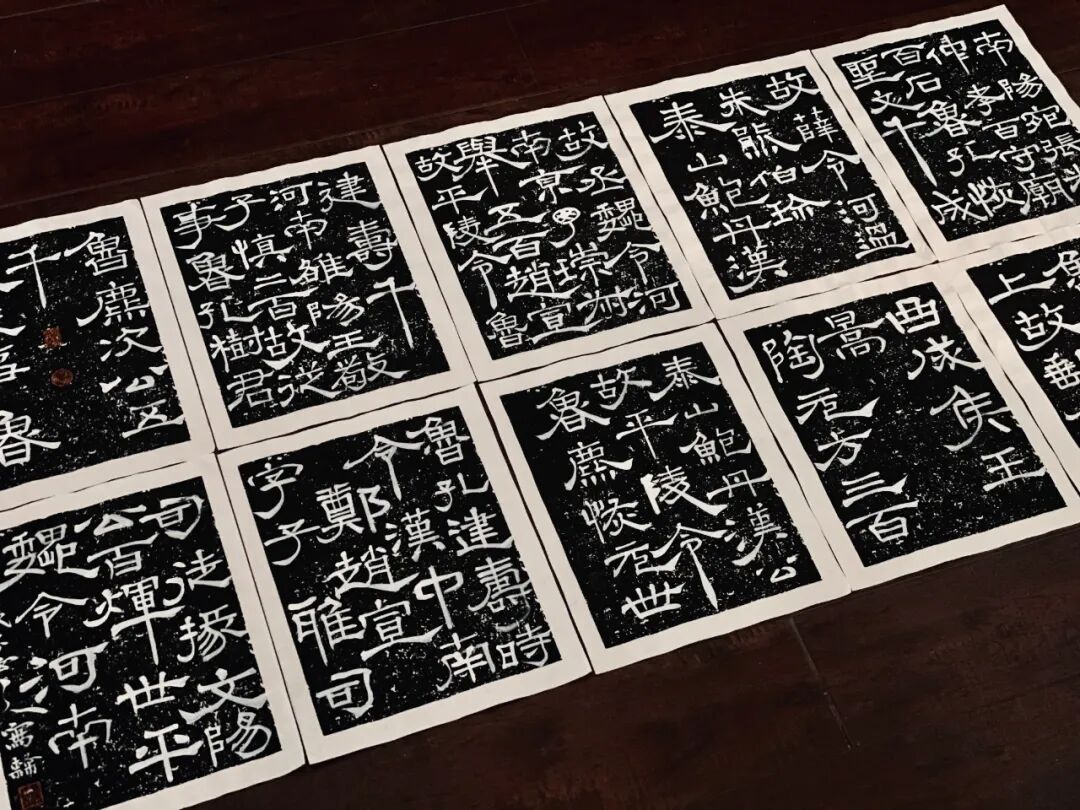 南陽宛張
仲李百守廟
百石魯孔恢
聖文千成
故薛令河溫
朱熊伯
泰山鮑丹漢
故丞魏令河
南京
舉五百趙宣
故平陵令魯
建壽千
河南雒陽王敬
子慎二百故從
事魯孔樹君
魯廉次公五
千
魯
上故
西成侯王
暠
陶元方三百
泰山鮑丹漢公
故平陵令
魯廉恢元世
魯孔建壽時
令漢中南
鄭趙宣
字子雅司
司徒掾文陽
公百煇世平
魏令河南